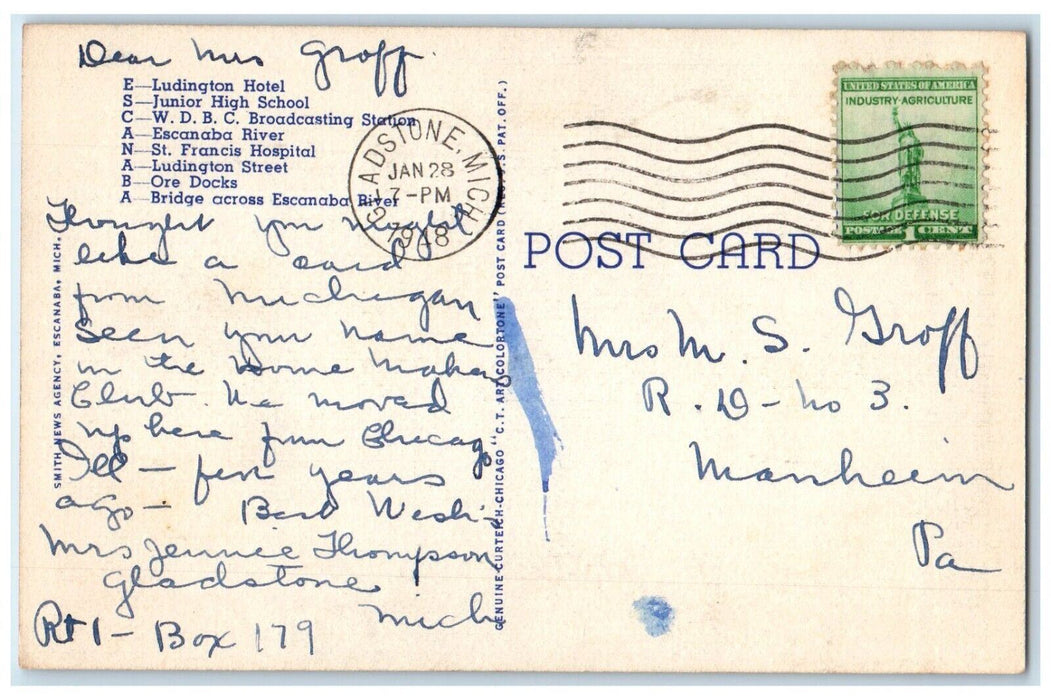 Dear Mrs Groff.
E—Ludington Hotel
S—Junior High School
C—W. D. B. C. Broadcasting Station
A—Escanaba River
N—St. Francis Hospital
A—Ludington Street
B—Ore Docks
A—Bridge across Escanaba River
Thought you might
like a card
from Michigan
Seen your name
in the Home Makers
Club. We moved
up here from Chicago
Ill — few years
ago — Best Wishes
Mrs Jennie Thompson
Gladstone
Mich
Rt 1 - Box 179
SMITH NEWS AGENCY, ESCANABA, MICH.
GENUINE CURTEICH-CHICAGO "C.T. ART-COLORTONE" POST CARD (REG. U.S. PAT. OFF.)
GLADSTONE, MICH.
JAN 28
7-PM
1948
UNITED STATES OF AMERICA
INDUSTRY·AGRICULTURE
FOR DEFENSE
POSTAGE 1 CENT
POST CARD
Mrs M. S. Groff
R. D - No 3.
Manheim
Pa